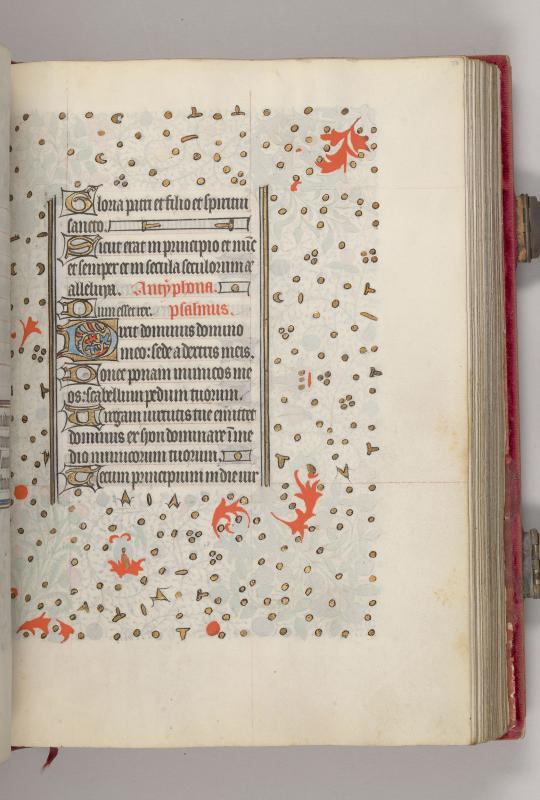 Gloria patri et filio et spiritui
sancto.
Sicut erat in principio et nūc
et semper et in secula seculorum a
alleluya. Antyphona.
Dum esset rex. psalmus.
Dixit dominus domino
meo: sede a dextris meis.
Donec ponam inimicos tu
os: scabellum pedum tuorum.
Virgam virtutis tue emittet
dominus ex syon dominare ī me
dio inimicorum tuorum.
Tecum principium in die vir